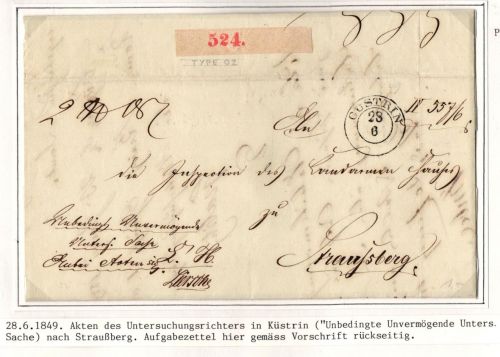 524.
TYPE 02
CÜSTRIN
28
6
die Inspection des Landarmen Hauses
zu
Unbedingt Unvermögende
Unters. Sache
Straußberg.
28.6.1849. Akten des Untersuchungsrichters in Küstrin ("Unbedingte Unvermögende Unters.
Sache) nach Straußberg. Aufgabezettel hier gemäss Vorschrift rückseitig.